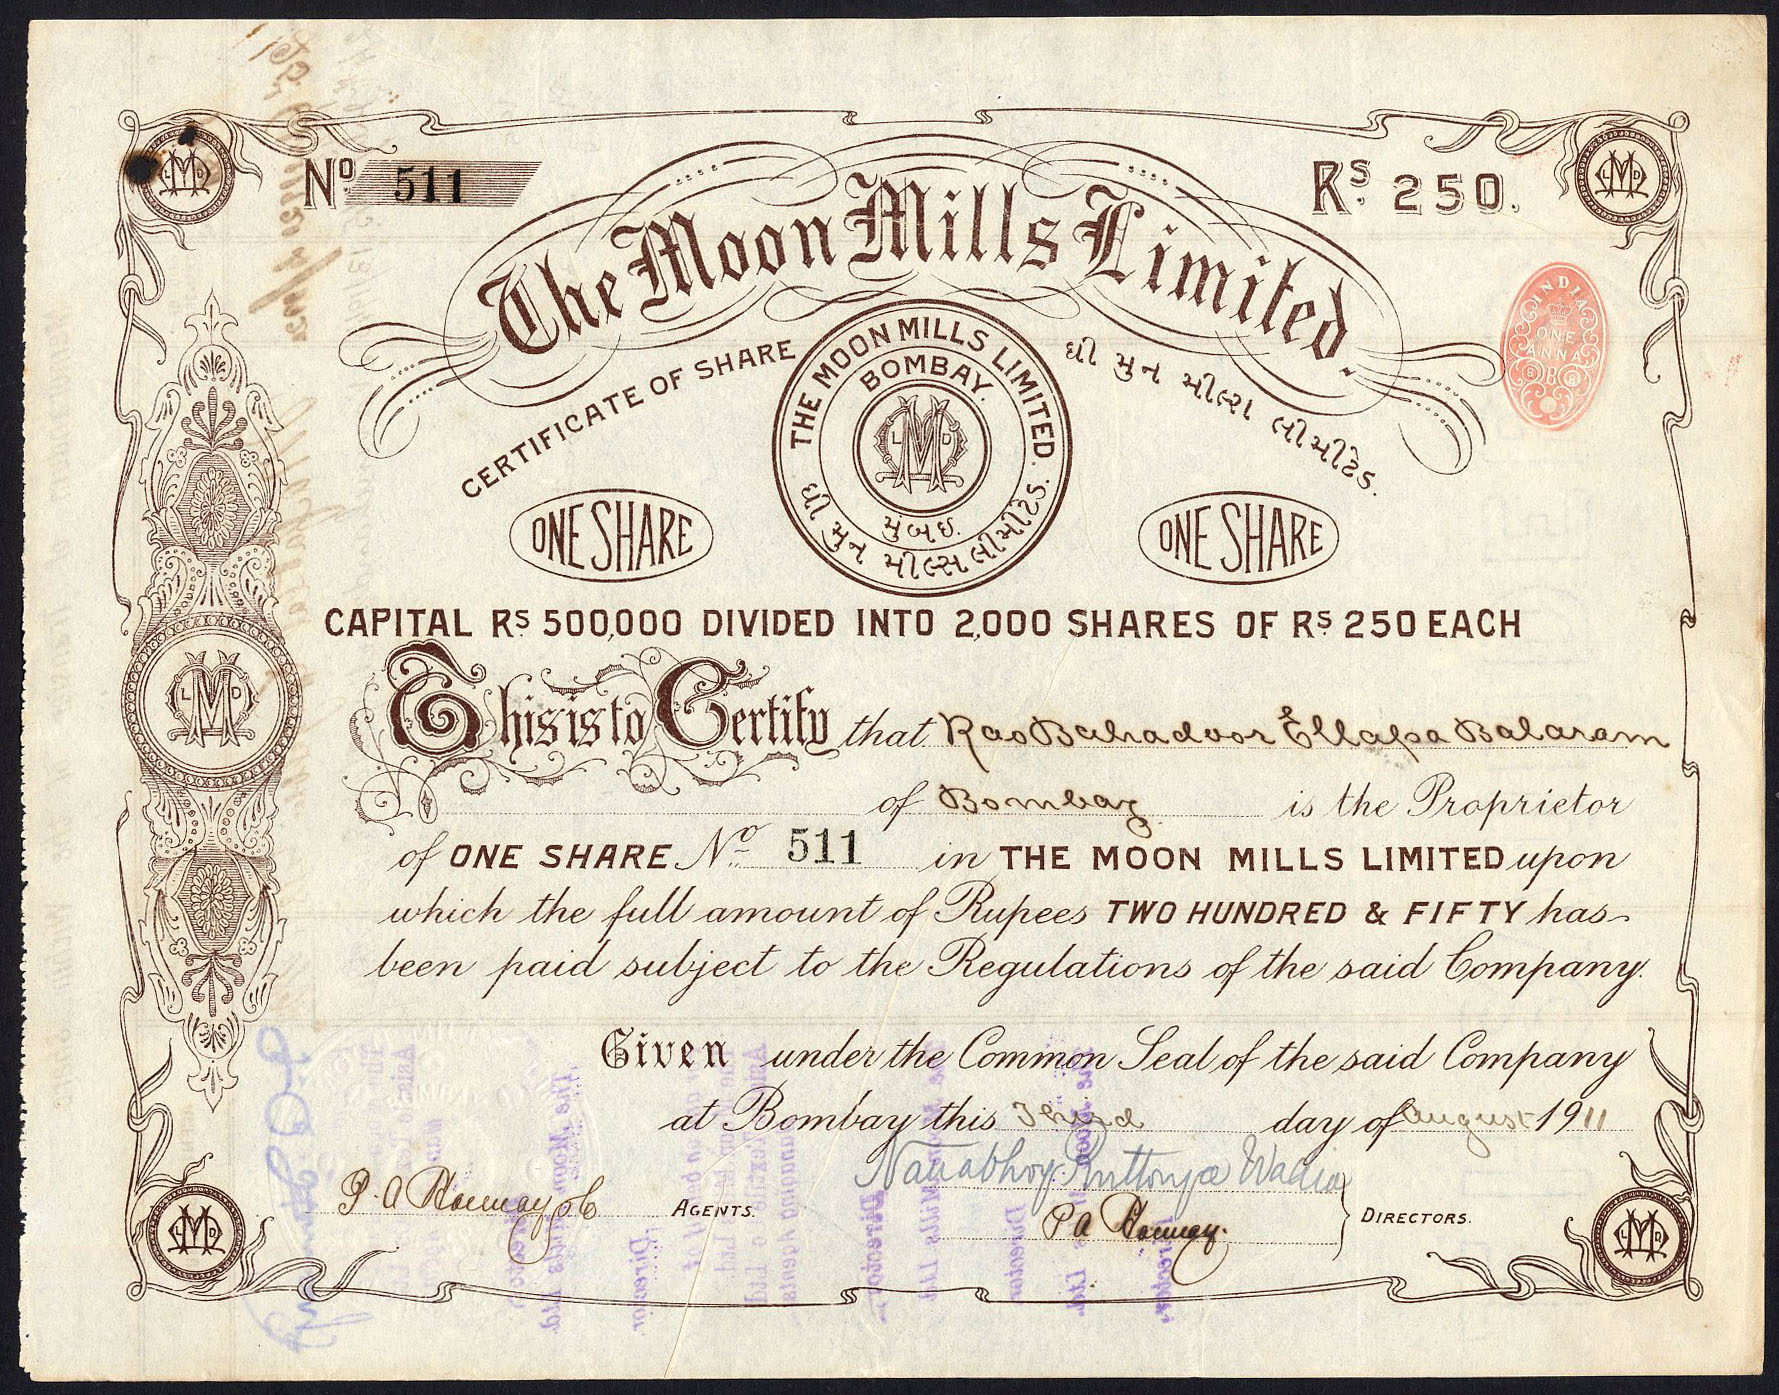 Nº 511
Rs. 250.
The Moon Mills Limited.
CERTIFICATE OF SHARE
ધી મુન મીલ્સ લીમીટેડ.
INDIA
ONE
ANNA
THE MOON MILLS LIMITED.
BOMBAY.
LMD
મુંબઇ.
ધી મુન મીલ્સ લીમીટેડ.
ONE SHARE
ONE SHARE
CAPITAL Rs 500,000 DIVIDED INTO 2,000 SHARES OF Rs 250 EACH
This is to Certify that Rao Bahadoor Ellapa Balaram
of Bombay is the Proprietor
of ONE SHARE No 511 in THE MOON MILLS LIMITED upon
which the full amount of Rupees TWO HUNDRED & FIFTY has
been paid subject to the Regulations of the said Company.
Given under the Common Seal of the said Company
at Bombay this Third day of August 1911
Nanabhoy Ruttonjee Wadia
AGENTS.
DIRECTORS.